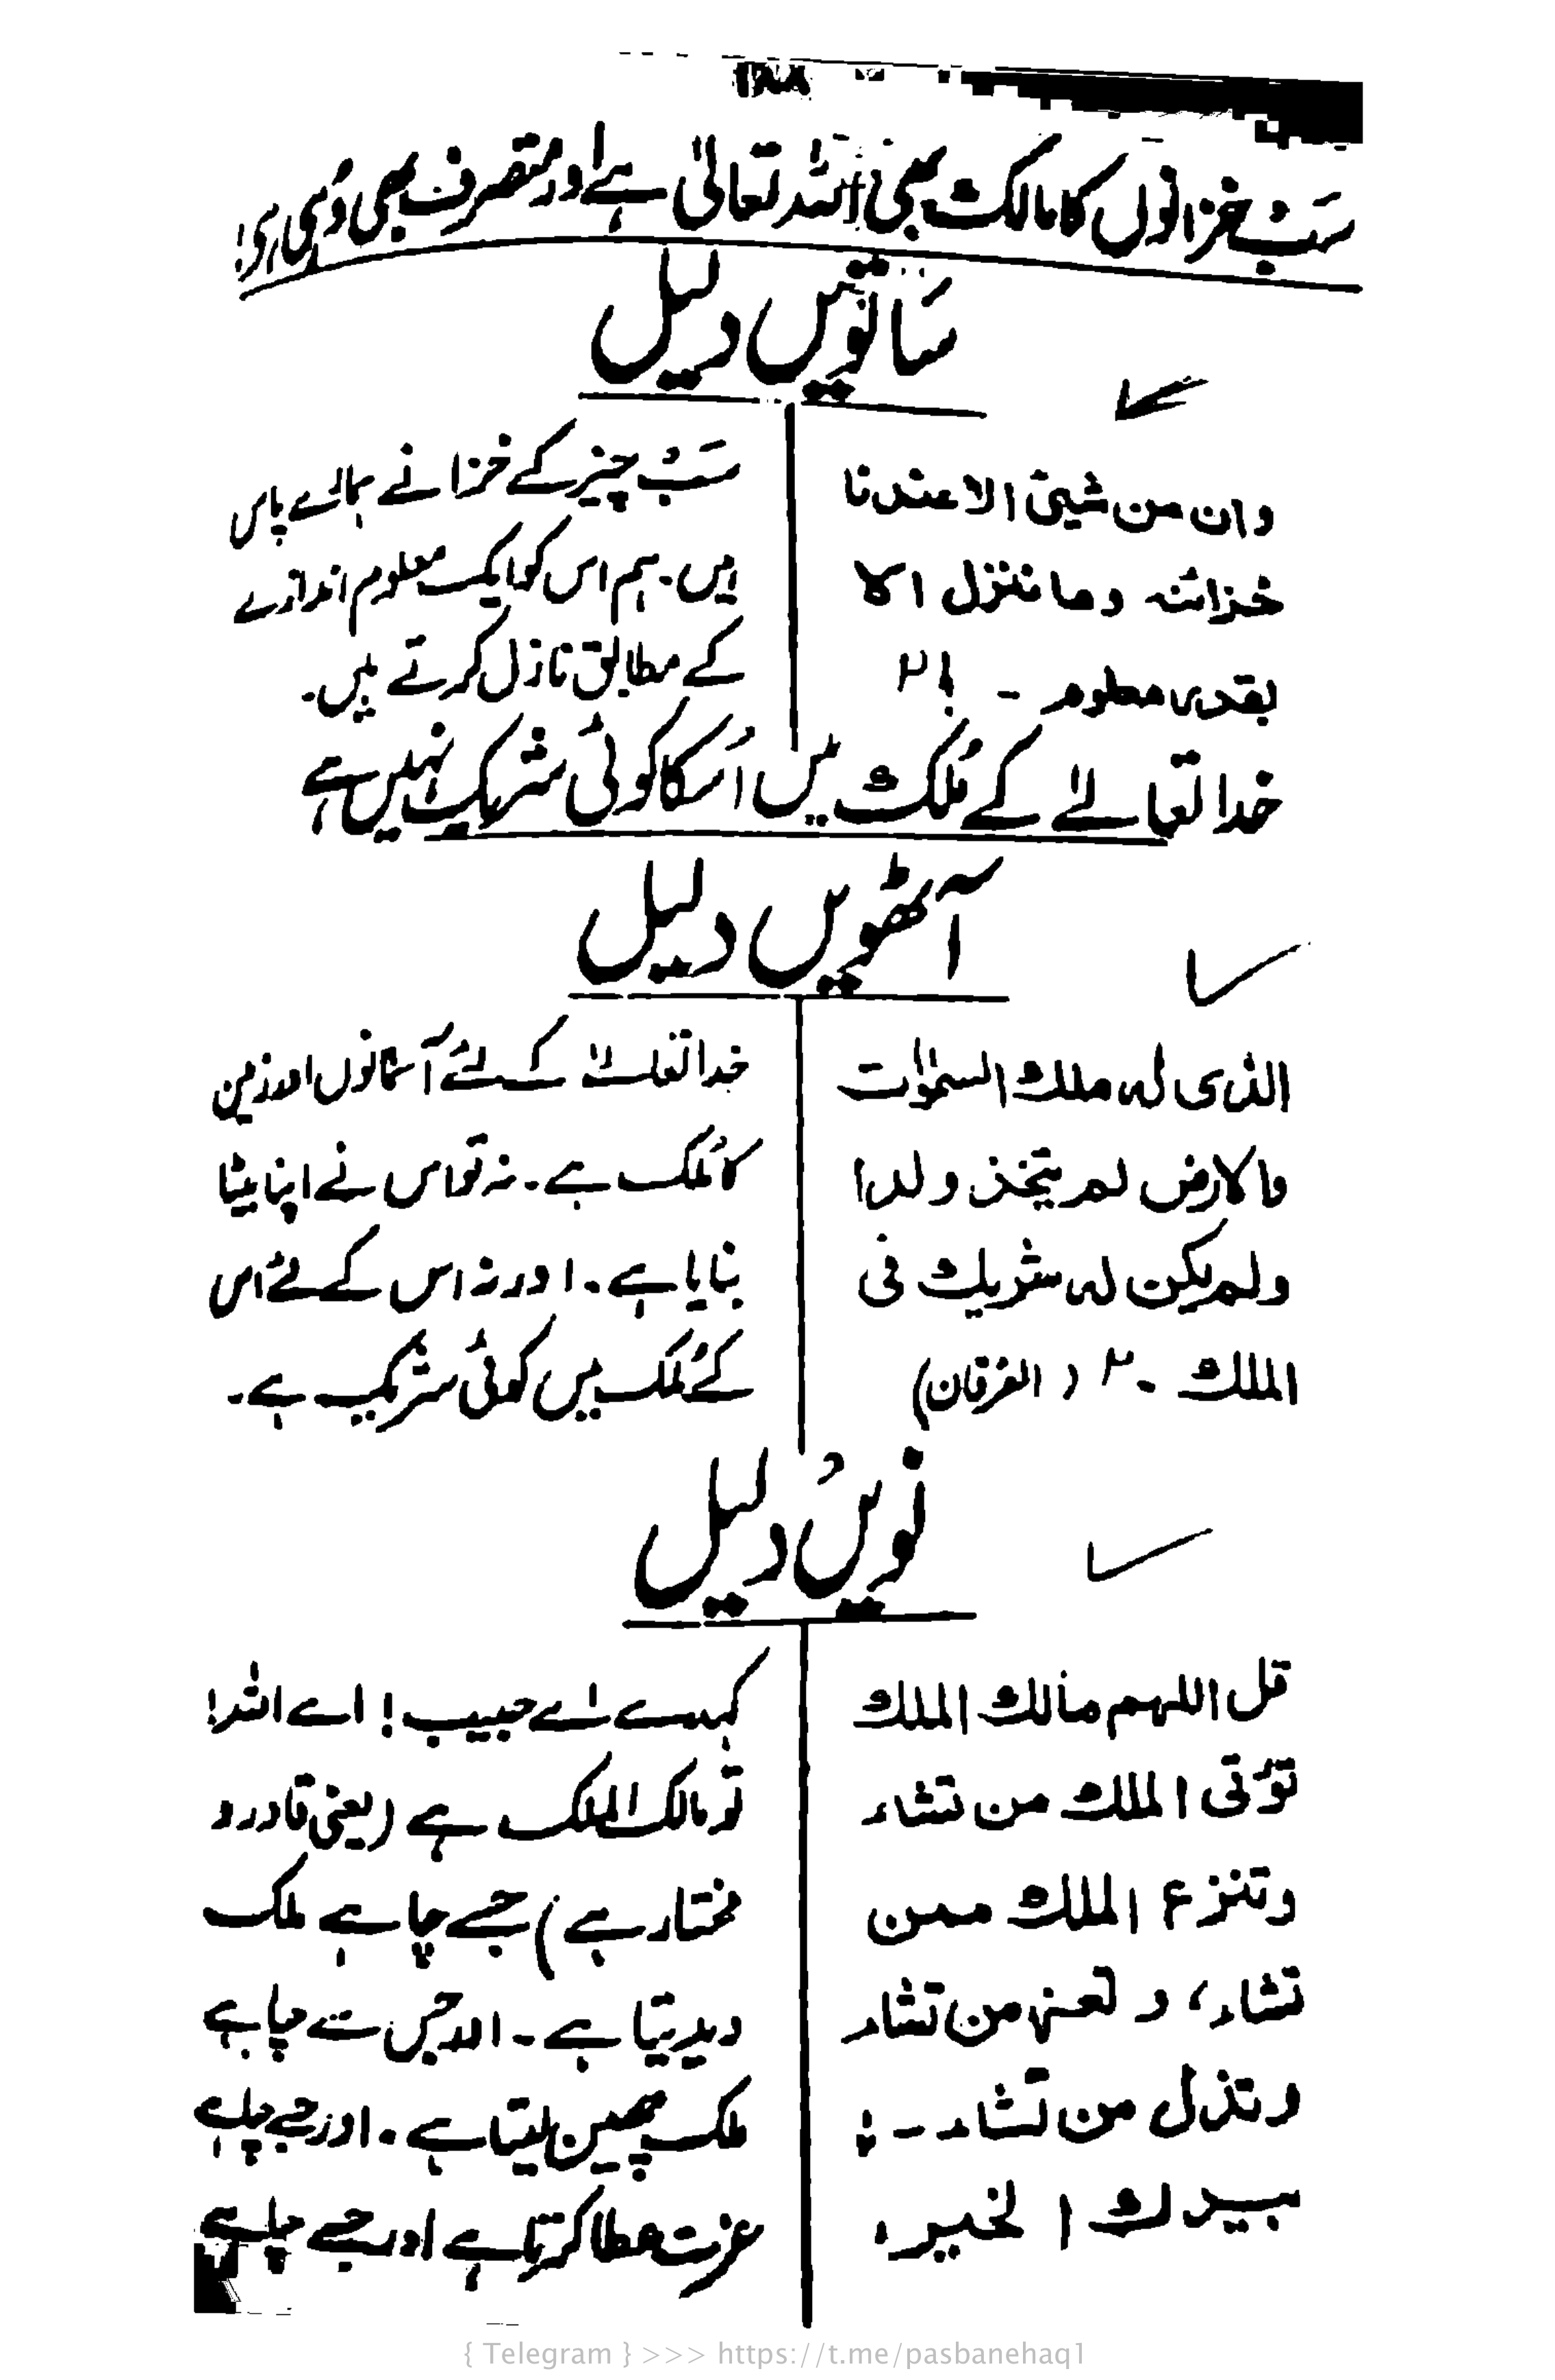 سب خزانوں کا مالک بھی اللہ تعالیٰ ہے اور متصرف بھی وہی
ساتویں دلیل
وان من شیئ الا عندنا
خزائنہ وما ننزل الا
بقدر معلوم ۔
سب چیز کے خزانے ہمارے پاس
ہیں۔ ہم اس کو ایک معلوم اندازے
کے مطابق نازل کرتے ہیں۔
خدا تعالےٰ کے ملک میں اُسکا کوئی شریک نہیں ہے
آٹھویں دلیل
الذی لہ ملک السمٰوٰت
والارض لم یتخذ ولدا
ولم یکن لہ شریك فی
الملك ۔ (الفرقان)
خدا تعالےٰ کے لئے آسمانوں اور زمین
کا مُلک ہے۔ نہ تو اس نے اپنا بیٹا
بنایا ہے۔ اور نہ اس کے لئے اس
کے مُلک میں کوئی شریک ہے۔
نویں دلیل
قل اللہم مالك الملك
تؤتی الملك من تشاء
وتنزع الملك ممن
تشاء، و تعز من تشاء
وتذل من تشاء ۔
بیدك الخیر،
کہدے اے حبیب! اے اللہ!
تو مالک الملک ہے (یعنی قادر و
مختار ہے) جسے چاہے ملک
دیدیتا ہے۔ اور جس سے چاہے
ملک چھین لیتا ہے۔ اور جسے چاہے
عزت عطا کرتا ہے اور جسے چاہے
{ Telegram } >>> https://t.me/pasbanehaq1